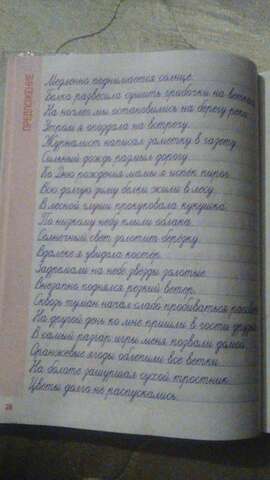 ПРЕДЛОЖЕНИЕ
Медленно поднимается солнце.
Белка развесила сушить грибочки на ветках.
На ночлег мы остановились на берегу реки.
Утром я опоздала на встречу.
Журналист написал заметку в газету.
Сильный дождь размыл дорогу.
Ко Дню рождения мамы я испёк пирог.
Всю долгую зиму белки жили в лесу.
В лесной глуши прокуковала кукушка.
По низкому небу плыли облака.
Солнечный свет золотит берёзку.
Вдалеке я увидала костёр.
Задремали на небе звёзды золотые.
Внезапно поднялся резкий ветер.
Сквозь туман начал слабо пробиваться рассвет
На другой день ко мне пришли в гости друзья
В самый разгар игры меня позвали домой.
Оранжевые ягоды облепили все ветки.
На болоте зашуршал сухой тростник.
Цветы долго не распускались.
28